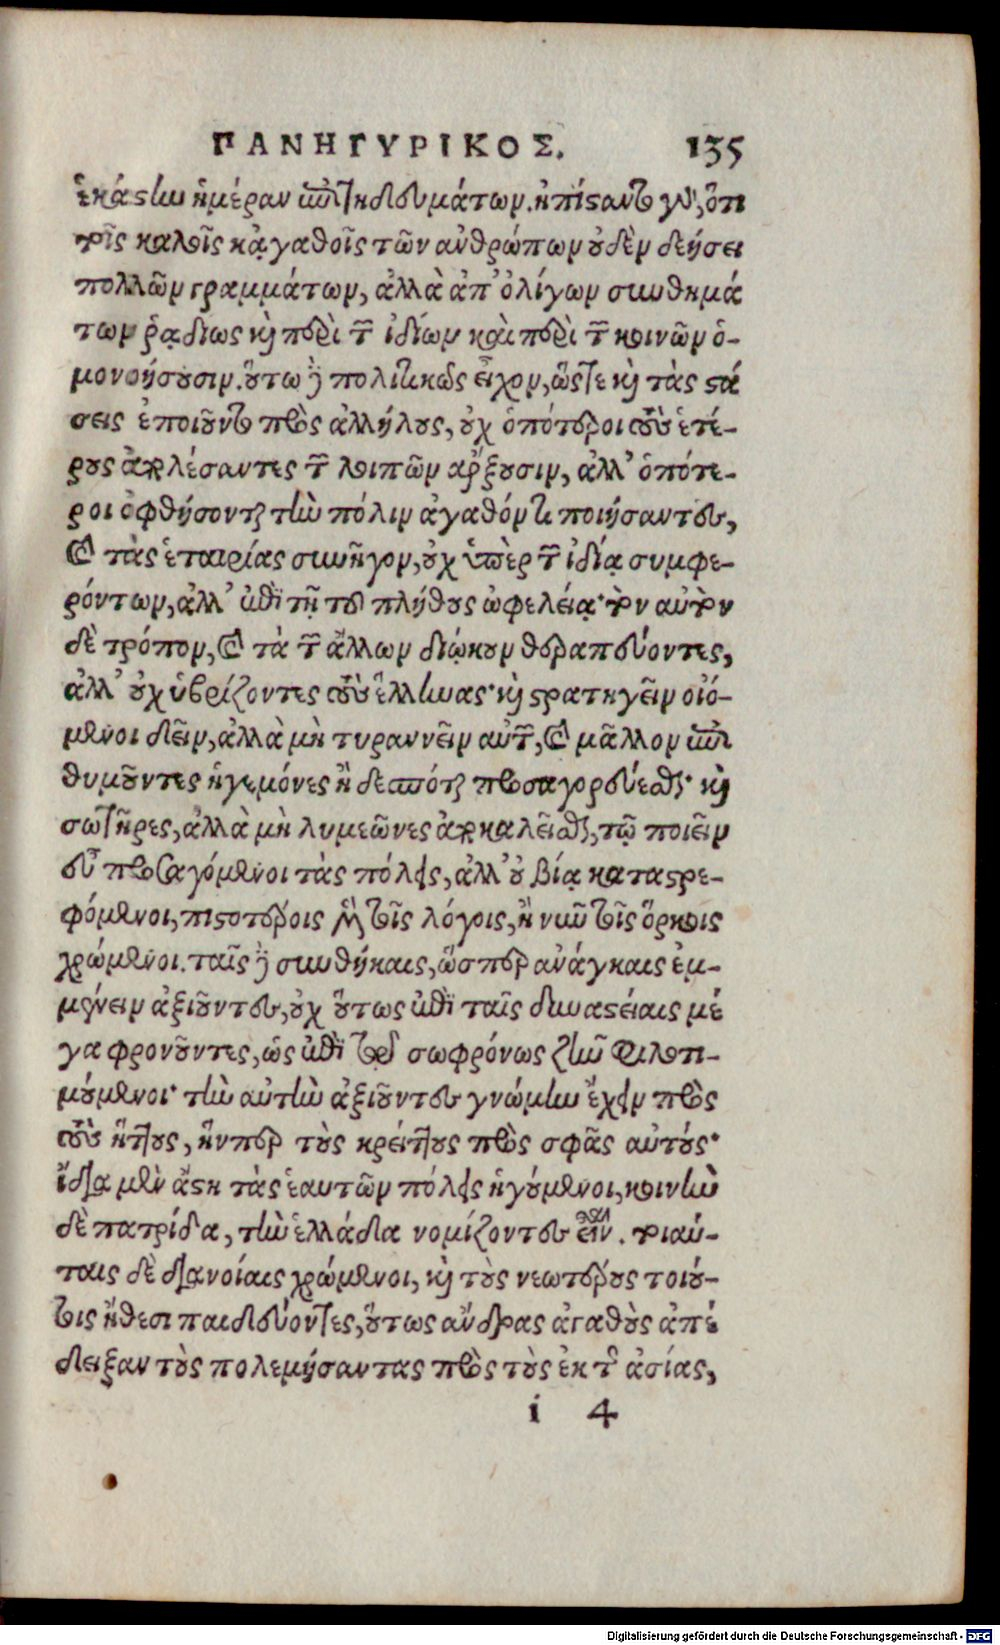 ΠΑΝΗΓΥΡΙΚΟΣ. 135
ἑκάστην ἡμέραν ἐπιτηδευμάτων. ἠπίσαντο γὸ, ὅτι
τοῖς καλοῖς κἀγαθοῖς τῶν ἀνθρώπων οὐδὲν δεήσει
πολλῶν γραμμάτων, ἀλλὰ ἀπ’ ὀλίγων συνθημά
των ῥᾳδίως καὶ περὶ τῶν ἰδίων καὶ περὶ τῶν κοινῶν ὁ-
μονοήσουσιν. οὕτω δὲ πολιτικῶς εἶχον, ὥστε καὶ τὰς στά
σεις ἐποιοῦντο πρὸς ἀλλήλους, οὐχ ὁπότεροι τοὺς ἑτέ-
ρους ἀπολέσαντες τῶν λοιπῶν ἄρξουσιν, ἀλλ’ ὁπότε-
ροι ὀφθήσονται τὴν πόλιν ἀγαθόν τι ποιήσαντες,
καὶ τὰς ἑταιρίας συνῆγον, οὐχ ὑπὲρ τῶν ἰδίᾳ συμφε-
ρόντων, ἀλλ’ ἐπὶ τῇ τοῦ πλήθους ὠφελείᾳ· τὸν αὐτὸν
δὲ τρόπον, καὶ τὰ τῶν ἄλλων διῴκουν θεραπεύοντες,
ἀλλ’ οὐχ ὑβρίζοντες τοὺς ἕλληνας· καὶ στρατηγεῖν οἰό-
μενοι δεῖν, ἀλλὰ μὴ τυραννεῖν αὐτῶν, καὶ μᾶλλον ἐπι
θυμοῦντες ἡγεμόνες ἢ δεσπόται προσαγορεύεσθαι· καὶ
σωτῆρες, ἀλλὰ μὴ λυμεῶνες ἀποκαλεῖσθαι, τῷ ποιεῖν
εὖ προσαγόμενοι τὰς πόλεις, ἀλλ’ οὐ βίᾳ καταστρε-
φόμενοι, πιστοτέροις μὲν τοῖς λόγοις, ἢ νῦν τοῖς ὅρκοις
χρώμενοι. ταῖς δὲ συνθήκαις, ὥσπερ ἀνάγκαις ἐμ-
μένειν ἀξιοῦντες, οὐχ οὕτως ἐπὶ ταῖς δυναστείαις μέ
γα φρονοῦντες, ὡς ἐπὶ τῷ σωφρόνως ζῆν φιλοτι-
μούμενοι· τὴν αὐτὴν ἀξιοῦντες γνώμην ἔχειν πρὸς
τοὺς ἥττους, ἥνπερ τοὺς κρείττους πρὸς σφᾶς αὐτούς·
ἴδια μὲν ἄστη τὰς ἑαυτῶν πόλεις ἡγούμενοι, κοινὴν
δὲ πατρίδα, τὴν ἑλλάδα νομίζοντες εἶναι. τοιαύ-
ταις δὲ διανοίαις χρώμενοι, καὶ τοὺς νεωτέρους τοιού-
τοις ἤθεσι παιδεύοντες, οὕτως ἄνδρας ἀγαθοὺς ἀπέ
δειξαν τοὺς πολεμήσαντας πρὸς τοὺς ἐκ τῆς ἀσίας,
i 4
Digitalisierung gefördert durch die Deutsche Forschungsgemeinschaft - DFG